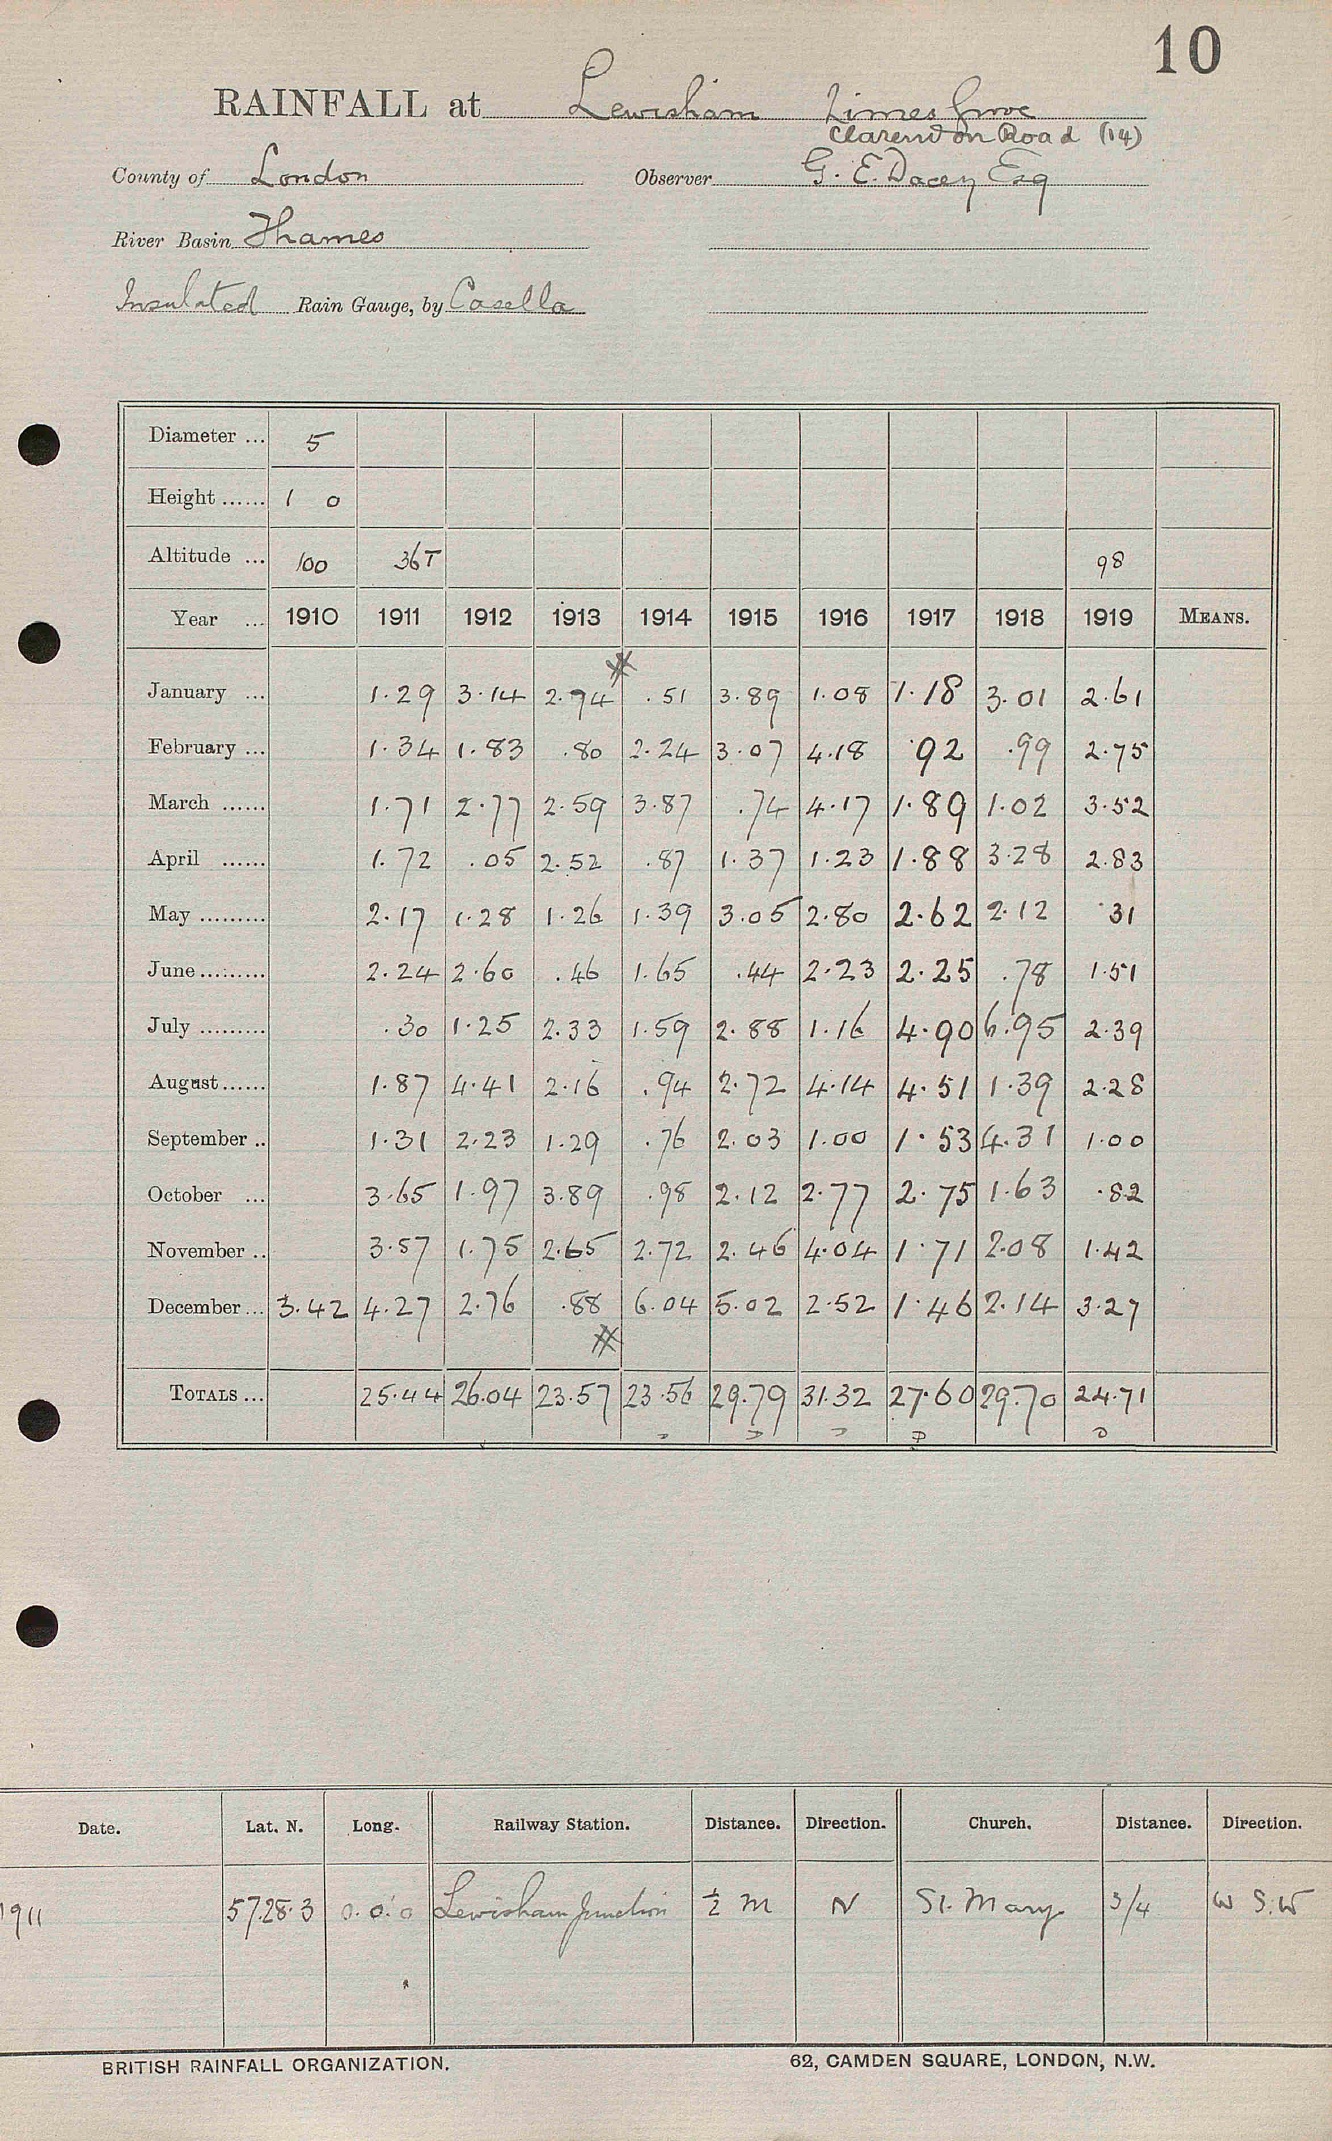 10
RAINFALL at Lewisham Limes Grove
Clarendon Road (14)
County of London Observer G. E. Dacey Esq
River Basin Thames
Insulated Rain Gauge, by Casella
Diameter ... 5
Height ...... 1 0
Altitude ... 100 36T 98
Year ... 1910 1911 1912 1913 1914 1915 1916 1917 1918 1919 MEANS.
January ... 1.29 3.14 2.74 .51 3.89 1.08 1.18 3.01 2.61
February ... 1.34 1.83 .80 2.24 3.07 4.18 .92 .99 2.75
March ...... 1.71 2.77 2.59 3.87 .74 4.17 1.89 1.02 3.52
April ...... 1.72 .05 2.52 .87 1.37 1.23 1.88 3.28 2.83
May ......... 2.17 1.28 1.26 1.39 3.05 2.80 2.62 2.12 .31
June ......... 2.24 2.60 .46 1.65 .44 2.23 2.25 .78 1.51
July ......... .30 1.25 2.33 1.59 2.88 1.16 4.90 6.95 2.39
August ...... 1.87 4.41 2.16 .94 2.72 4.14 4.51 1.39 2.28
September .. 1.31 2.23 1.29 .76 2.03 1.00 1.53 4.31 1.00
October ... 3.65 1.97 3.89 .98 2.12 2.77 2.75 1.63 .82
November .. 3.57 1.75 2.65 2.72 2.46 4.04 1.71 2.08 1.42
December ... 3.42 4.27 2.76 .88 6.04 5.02 2.52 1.46 2.14 3.27
TOTALS ... 25.44 26.04 23.57 23.56 29.79 31.32 27.60 29.70 24.71
Date. Lat. N. Long. Railway Station. Distance. Direction. Church. Distance. Direction.
1911 57.28.3 0.0.0 Lewisham Junction ½ M N St. Mary 3/4 W S.W
BRITISH RAINFALL ORGANIZATION. 62, CAMDEN SQUARE, LONDON, N.W.